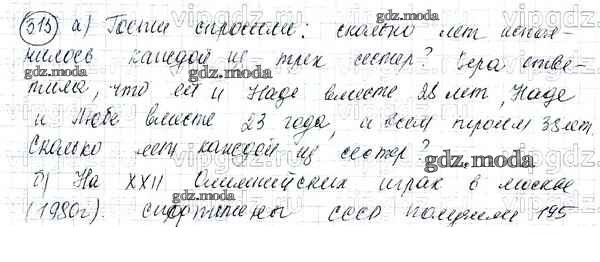 315 а) Гости спросили: сколько лет испол-
нилось каждой из трех сестер? Вера отве-
тила, что ей и Наде вместе 28 лет, Наде
и Любе вместе 23 года, а всем троим 38 лет.
Сколько лет каждой из сестер?
б) На XXII Олимпийских играх в москве
(1980г). спортсмены СССР получили 195